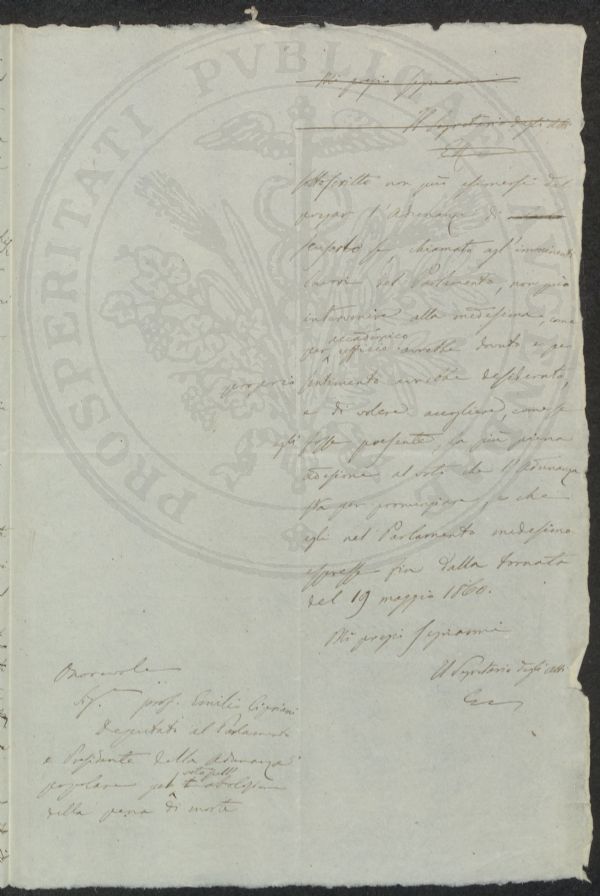 PROSPERITATI PVBLICAE
Mi pregio segnarmi
Il Segretario degli Atti
sottoscritto non può esimersi dal
pregar l'Adunanza di
scusarlo se chiamato agl'imminenti
lavori del Parlamento, non può
intervenire alla medesima, come
accademico
per ufficio avrebbe dovuto e pe
proprio sentimento avrebbe desiderato,
e di volere accogliere, come se
egli fosse presente, la più piena
adesione al voto che l'Adunanza
sta per pronunziare, e che
egli nel Parlamento medesimo
espresse fin dalla tornata
del 19 maggio 1860.
Mi pregio segnarmi
Il Segretario degli Atti
Onorevole
Sig.r prof. Emilio Cipriani
Deputato al Parlamento
e Presidente della Adunanza
popolare pel abolizione
della pena di morte